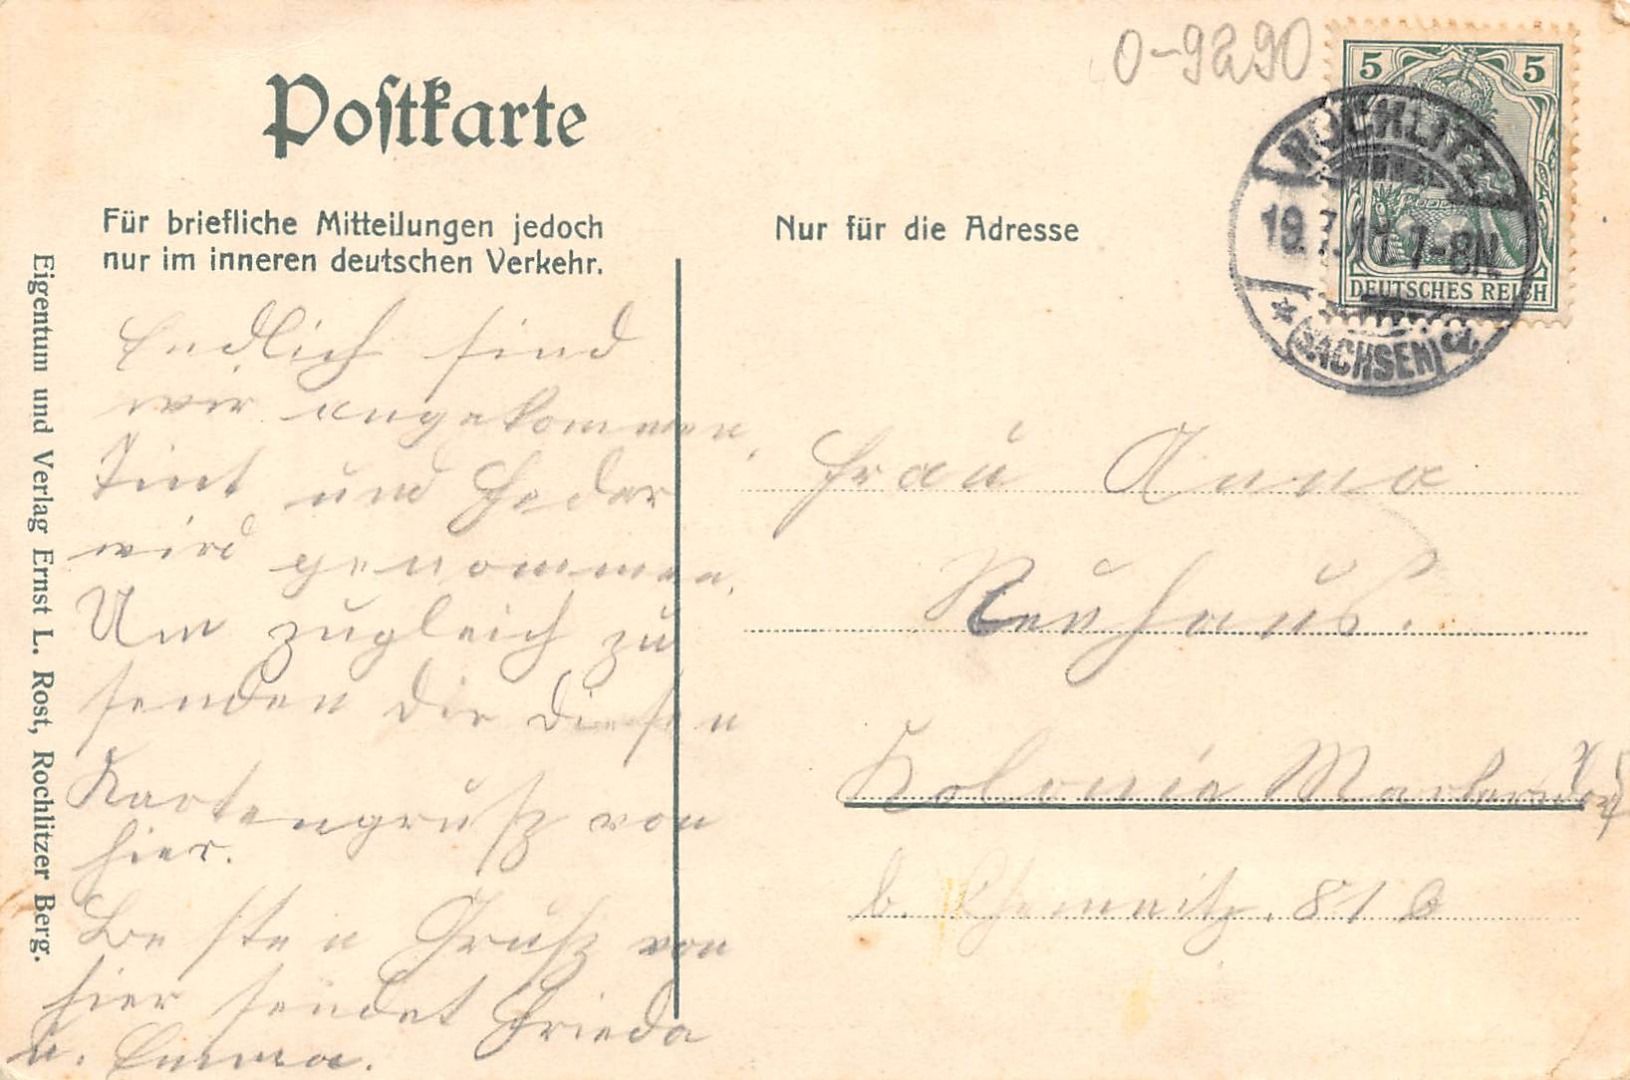 0-9290
Postkarte
5 5
DEUTSCHES REICH
ROCHLITZ
19.7.11.7-8N.
* (SACHSEN) a
Für briefliche Mitteilungen jedoch
nur im inneren deutschen Verkehr.
Nur für die Adresse
Eigentum und Verlag Ernst L. Rost, Rochlitzer Berg.
Endlich sind
wir angekommen,
Tint und Feder
wird genommen,
Um zugleich zu
senden Dir diesen
Kartengruß von
hier.
Besten Gruß von
hier sendet Frieda
u. Emma.
Frau Anna
Neuhaus.
Kolonie
b. Chemnitz. 81 b